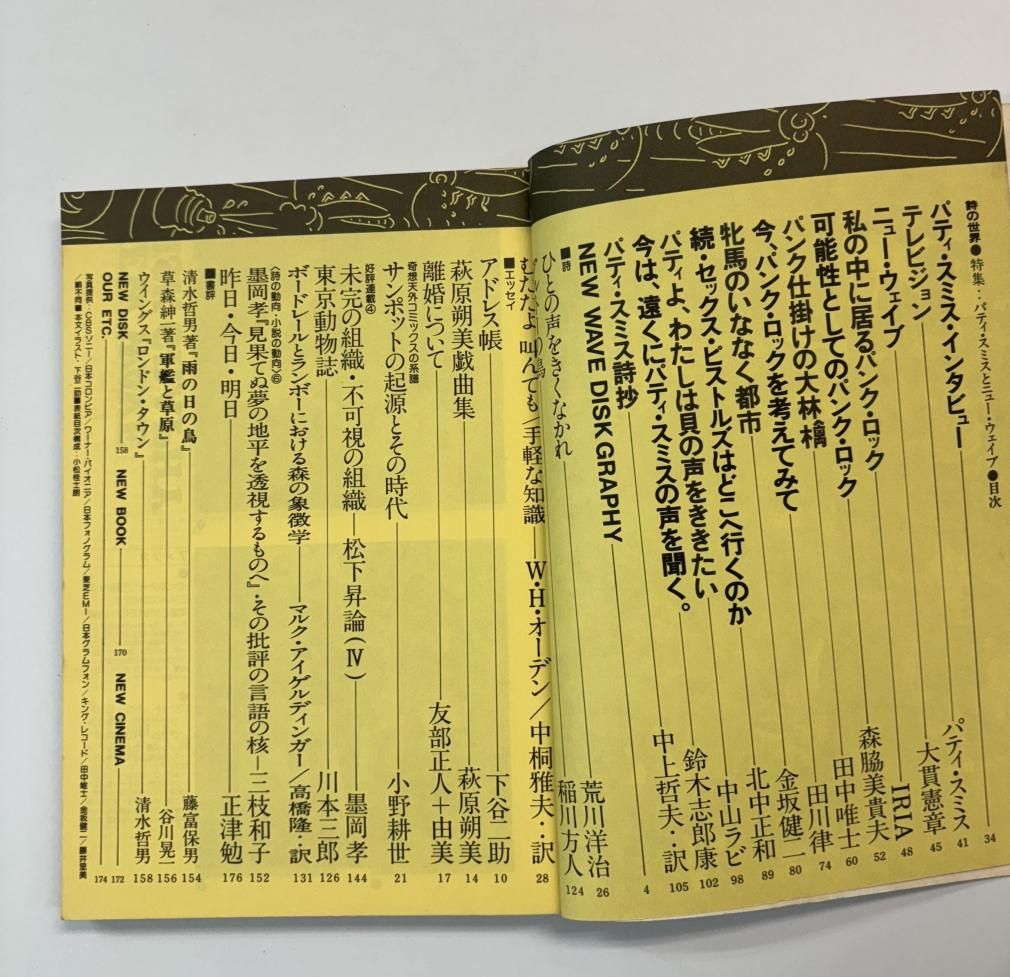 詩の世界●特集：パティ・スミスとニュー・ウェイブ●目次
パティ・スミス・インタビュー 34
テレビジョン パティ・スミス 41
ニュー・ウェイブ 大貫憲章 45
私の中に居るパンク・ロック IRIA 48
可能性としてのパンク・ロック 森脇美貴夫 52
パンク仕掛けの大林檎 田中唯士 60
今、パンク・ロックを考えてみて 田川律 74
牝馬のいななく都市 金坂健二 80
続・セックス・ピストルズはどこへ行くのか 北中正和 89
パティよ、わたしは貝の声をききたい 中山ラビ 98
今は、遠くにパティ・スミスの声を聞く。 鈴木志郎康 102
パティ・スミス詩抄 中上哲夫・訳 105
NEW WAVE DISKGRAPHY 4
■詩
ひとの声をきくなかれ 荒川洋治 26
り鳥 稲川方人 124
むだだよ 叫んでも／手軽な知識 W・H・オーデン／中桐雅夫・訳 28
■エッセイ
アドレス帳 下谷二助 10
萩原朔美戯曲集 萩原朔美 14
離婚について 友部正人＋由美 17
奇想天外コミックスの系譜
サンポットの起源とその時代 小野耕世 21
好評連載④
未完の組織・不可視の組織―松下昇論(Ⅳ) 墨岡孝 144
東京動物誌 川本三郎 126
ボードレールとランボーにおける森の象徴学 マルク・アイゲルディンガー／高橋隆・訳 131
〈詩の動向・小説の動向〉⑥
墨岡孝『見果てぬ夢の地平を透視するものへ』・その批評の言語の核 三枝和子 152
昨日・今日・明日 正津勉 176
■書評
清水哲男著『雨の日の鳥』 藤富保男 154
草森紳一著『軍艦と草原』 谷川晃一 156
ウィングス『ロンドン・タウン』 清水哲男 158
NEW DISK 158 NEW BOOK 170 NEW CINEMA 172
OUR ETC. 174
写真提供・CBSソニー／日本コロンビア／ワーナー・パイオニア／日本フォノグラム／東芝EMI／日本グラムフォン／キング・レコード／田中唯士／金坂健二／藤井里美
／順不同■本文イラスト・下谷二助■表紙目次構成・小松桂士朗